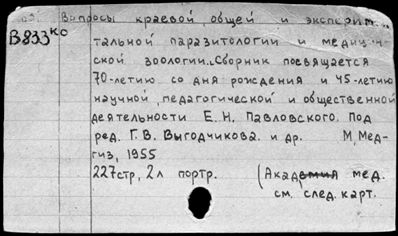 Вопросы краевой, общей и эксперим
В833ко
тальной паразитологии и медицин
ской зоологии. Сборник посвящается
70-летию со дня рождения и 45-летию
научной, педагогической и общественной
деятельности Е. Н. Павловского. Под
ред. Г. В. Выгодчикова и др. М, Мед-
гиз, 1955
227стр, 2 л портр. (Академия мед.
см. след. карт.